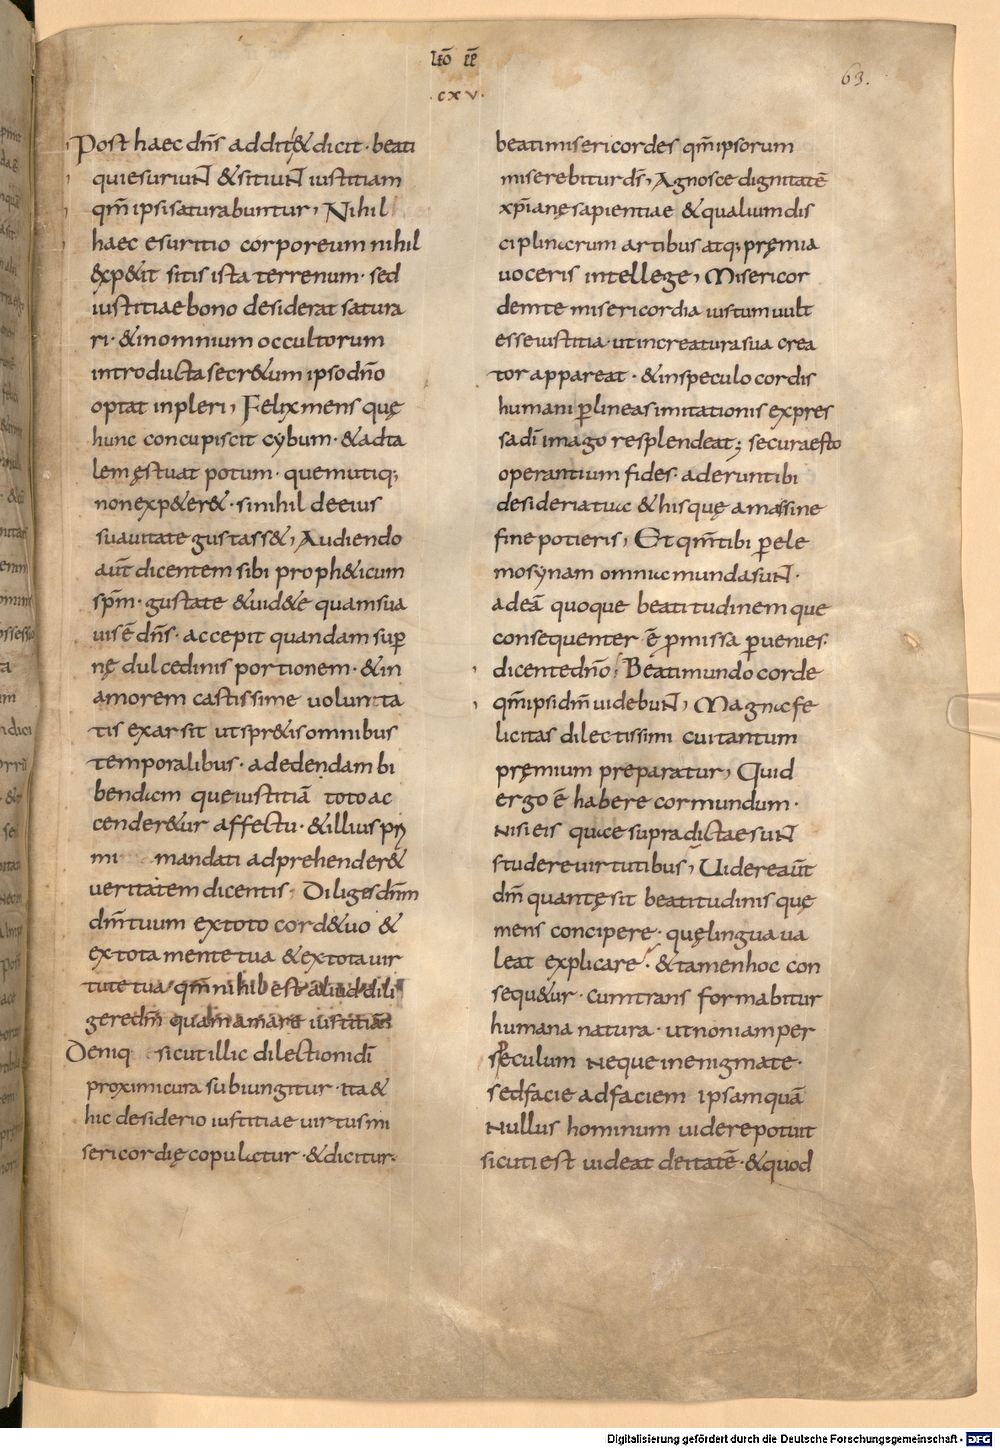 lẽo iiē
·cxv·
63.
Post haec dn̄s addit & dicit· beati
qui esuriunt & sitiunt iustitiam
qm̄ ipsi saturabuntur, Nihil
haec esuritio corporeum nihil
exp&it sitis ista terrenum· sed
iustitiae bono desiderat satura
ri· & in omnium occultorum
introducta secr&um ipso dn̄o
optat inpleri, Felix mens quę
hunc concupiscit cybum· & ad ta
lem ęstuat potum· quem utiq;
non exp&er&· si nihil de eius
suauitate gustass&, Audiendo
aut̄ dicentem sibi proph&icum
spm̄· gustate & uid&e quam sua
uis ē dn̄s· accepit quandam sup̱
nę dulcedinis portionem· & in
amorem castissime uolunta
tis exarsit ut spr&is omnibus
temporalibus· ad edendam bi
bendam que iustitiā toto ac
cender&ur affectu· & illius pri
mi mandati adprehender&
ueritatem dicentis· Diliges dn̄m
dm̄ tuum ex toto cord&uo &
ex tota mente tua & ex tota uir
tute tua· qm̄ nihil est aliud dili
gere dm̄ quam amare iustitiam
Deniq sicut illic dilectioni dī
proximi cura subiungitur· ita &
hic desiderio iustitiae uirtus mi
sericordię copulatur· & dicitur·
beati misericordes qm̄ ipsorum
miserebitur ds̄, Agnosce dignitatē
xp̄ianę sapientiae & qualium dis
ciplinarum artibus atq; pręmia
uoceris intellege, Misericor
dem te misericordia iustum uult
esse iustitia· ut in creatura sua crea
tor appareat· & in speculo cordis
humani p̱ lineas imitationis expres
sa dī imago resplendeat; secura esto
operantium fides· aderunt tibi
desideria tua & his quę amas sine
fine potieris, Et qm̄ tibi p̱ ele
mosynam omnia munda sunt·
ad eā quoque beatitudinem que
consequenter ē p̱missa p̱uenies·
dicente dn̄o· Beati mundo corde
qm̄ ipsi dm̄ uidebunt, Magna fe
licitas dilectissimi cui tantum
pręmium preparatur, Quid
ergo ē habere cor mundum·
nisi eis quae supra dictae sunt
studere uirtutibus, Uidere aut̄
dm̄ quantę sit beatitudinis quę
mens concipere· quę lingua ua
leat explicare· & tamen hoc con
sequ&ur· cum transformabitur
humana natura· ut non iam per
speculum neque in enigmate·
sed facie ad faciem ipsam quā
Nullus hominum uidere potuit
sicuti est uideat deitatē· & quod
Digitalisierung gefördert durch die Deutsche Forschungsgemeinschaft - DFG